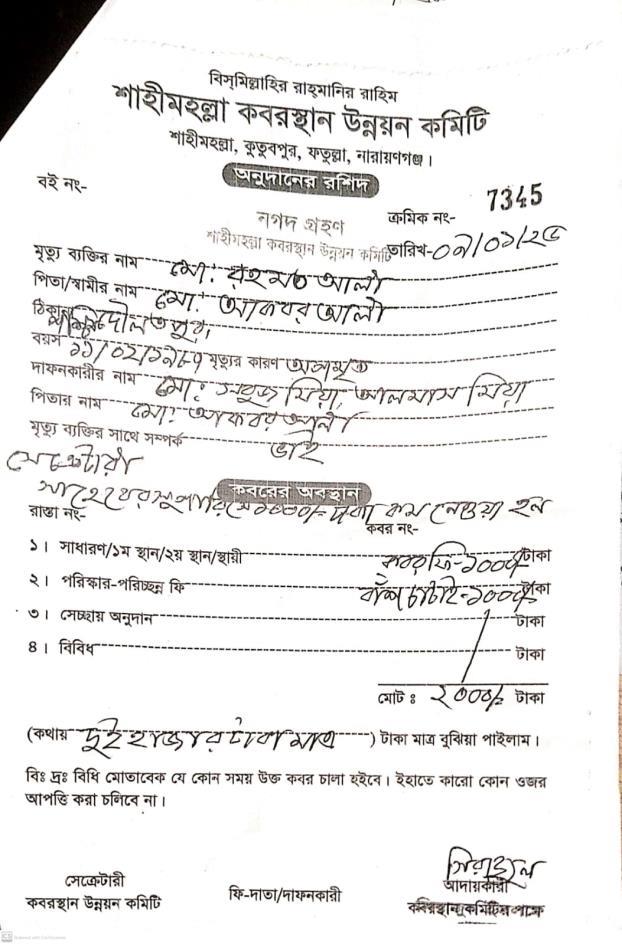 বিস্‌মিল্লাহির রাহ্‌মানির রাহিম
শাহীমহল্লা কবরস্থান উন্নয়ন কমিটি
শাহীমহল্লা, কুতুবপুর, ফতুল্লা, নারায়ণগঞ্জ।
অনুদানের রশিদ
বই নং-
নগদ গ্রহণ
ক্রমিক নং- 7345
শাহীমহল্লা কবরস্থান উন্নয়ন কমিটি তারিখ-
মৃত্যু ব্যক্তির নাম মো: রহমত আলী
পিতা/স্বামীর নাম মো: আকবর আলী
ঠিকানা দৌলতপুর,
বয়স মৃত্যুর কারণ
দাফনকারীর নাম মো: সবুজ মিয়া, আলমাস মিয়া
পিতার নাম মো: আকবর আলী
মৃত্যু ব্যক্তির সাথে সম্পর্ক ভাই
সেক্রেটারী
কবরের অবস্থান
সাহেবের সুপারিশে ১০০০/- টাকা কম নেওয়া হল
রাস্তা নং- কবর নং-
১। সাধারণ/১ম স্থান/২য় স্থান/স্থায়ী কবর ফি-১০০০/- টাকা
২। পরিস্কার-পরিচ্ছন্ন ফি বাঁশ চাটাই-১০০০/- টাকা
৩। সেচ্ছায় অনুদান টাকা
৪। বিবিধ টাকা
মোট ঃ ২০০০/- টাকা
(কথায় দুই হাজার টাকা মাত্র) টাকা মাত্র বুঝিয়া পাইলাম।
বিঃ দ্রঃ বিধি মোতাবেক যে কোন সময় উক্ত কবর চালা হইবে। ইহাতে কারো কোন ওজর
আপত্তি করা চলিবে না।
সিরাজুল
সেক্রেটারী
কবরস্থান উন্নয়ন কমিটি
ফি-দাতা/দাফনকারী
আদায়কারী
কবরস্থান কমিটির পক্ষে